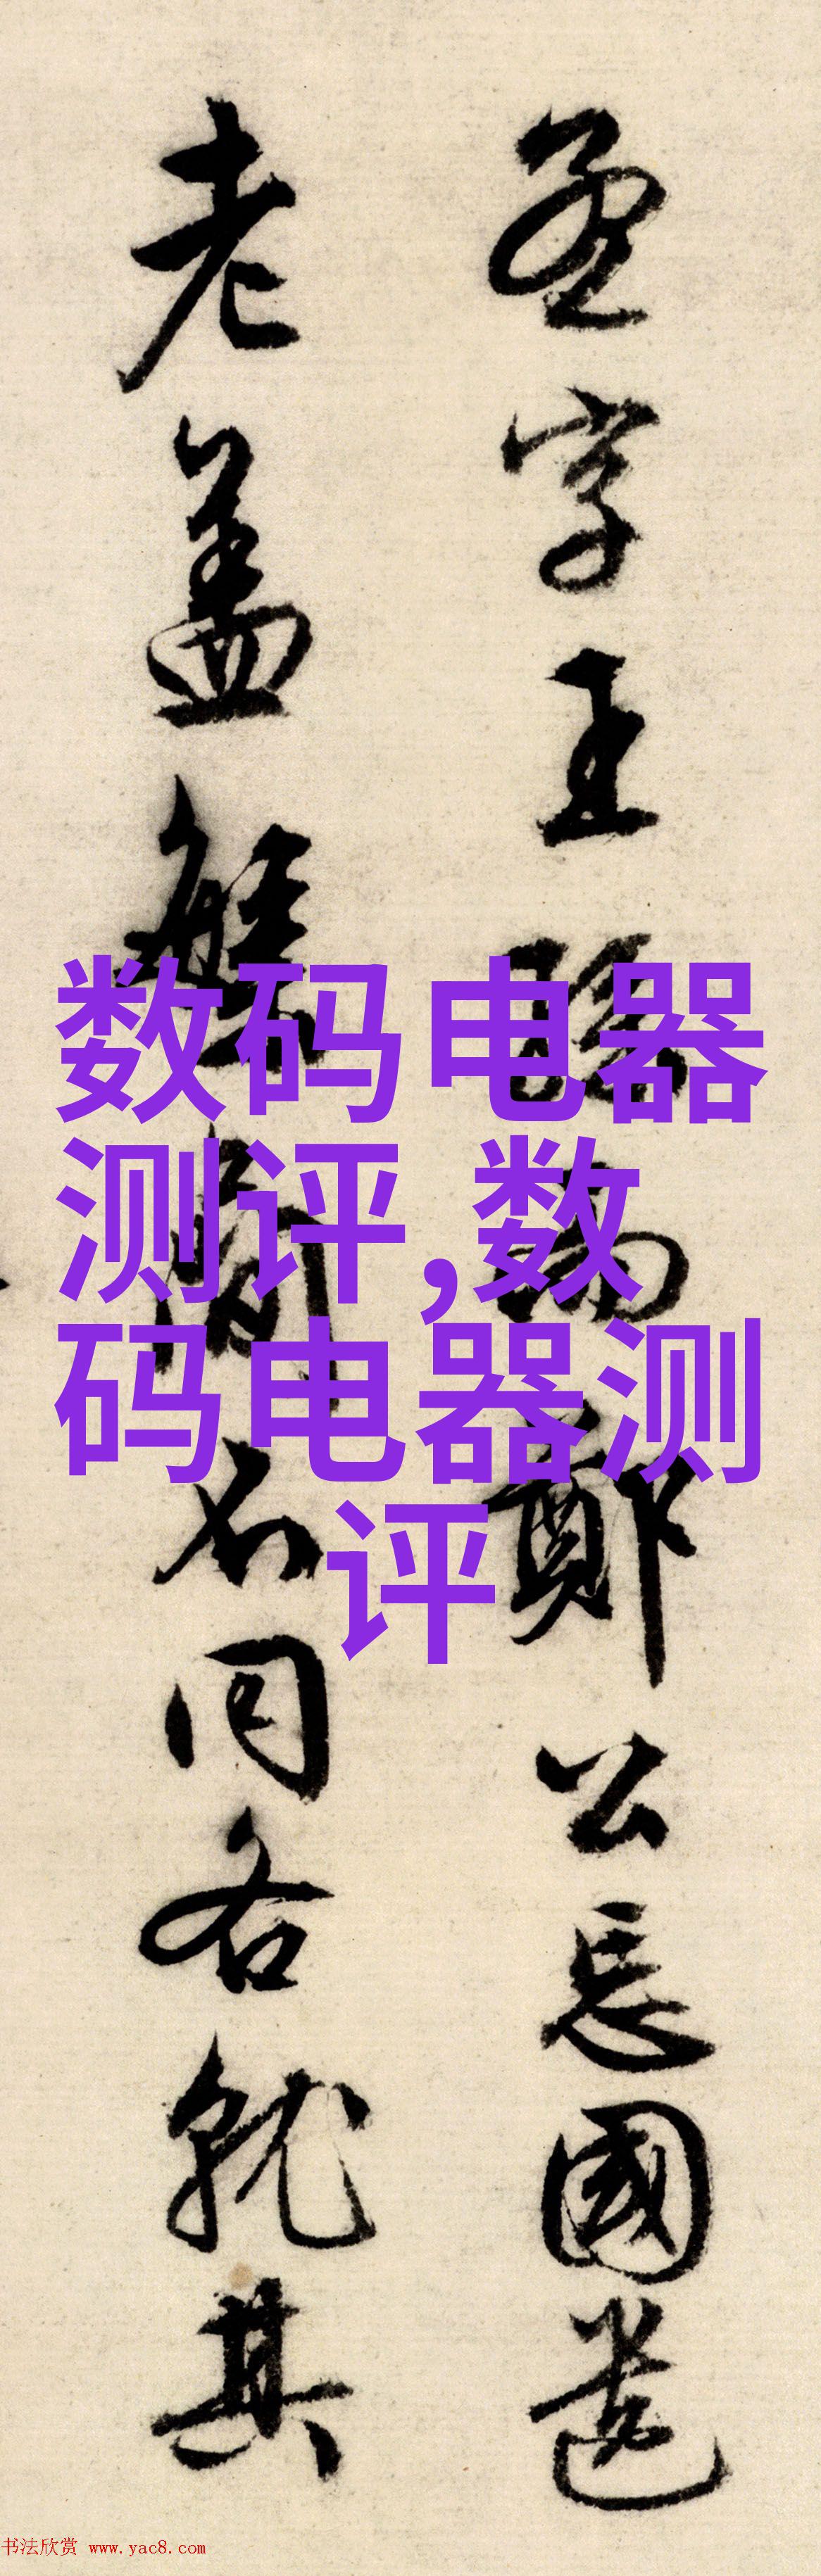 字王鄭公忘國遺
老盖不同各就其
数码电器
测评,数
码电器测
评
书法欣赏 www.yac8.com